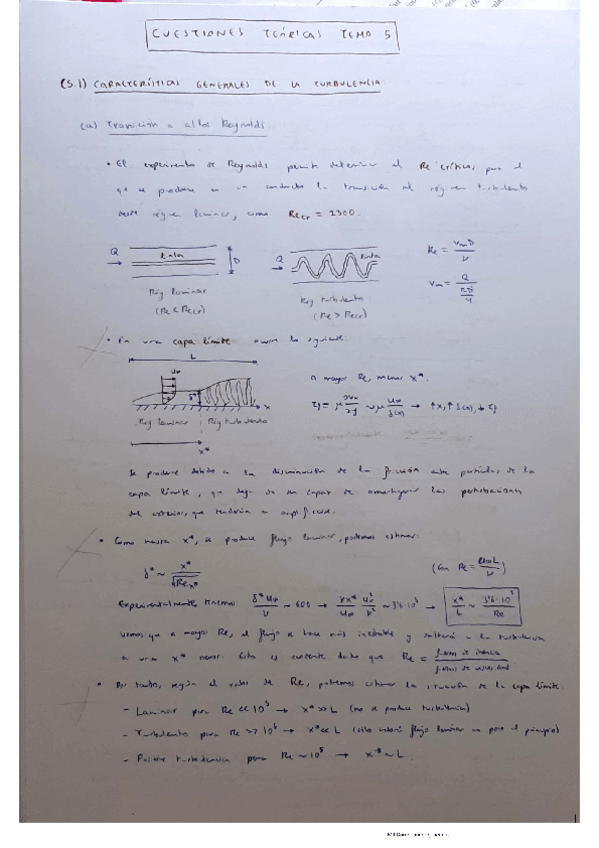 CUESTIONES TEÓRICAS TEMA 5
(5.1) CARACTERÍSTICAS GENERALES DE LA TURBULENCIA:
(a) Transición a altos Reynolds.
• El experimento de Reynolds permite determinar el Re crítico, para el
que se produce en un conducto la transición al régimen turbulento
desde régimen laminar, como Re_cr = 2300.
Q → tinta D
Q → tinta
Re = v_m D / ν
v_m = Q / (πD²/4)
Rég laminar
(Re < Re_cr)
Rég turbulento
(Re > Re_cr)
• En una capa límite ocurre lo siguiente:
L
U∞
δ* x
Rég laminar Rég turbulento
x*
A mayor Re, menor x*.
τ_f = μ ∂v_x/∂y ~ μ U∞/δ(x) → ↑x, ↑δ(x), ↓τ_f
Se produce debido a la disminución de la fricción entre partículas de la
capa límite, que deja de ser capaz de amortiguar las perturbaciones
del exterior, que tenderán a amplificarse.
• Como hasta x*, se produce flujo laminar, podemos estimar:
δ* ~ x*/√Re_x*
(Con Re = U∞L/ν)
Experimentalmente tenemos: δ* U∞/ν ~ 600 → ~ 3'6·10⁵ → x*/L ~ 3'6·10⁵/Re
Vemos que a mayor Re, el flujo se hace más inestable y a la turbulencia
a una x* menor. Esto es coherente dado que Re = fuerzas de inercia / fuerzas de viscosidad
• Por tanto, según el valor de Re, podremos estimar la situación de la capa límite:
- Laminar para Re << 10⁵ → x* >> L (no se produce turbulencia)
- Turbulento para Re >> 10⁵ → x* << L (sólo habrá flujo laminar en por el principio)
- Posible turbulencia para Re ~ 10⁵ → x* ~ L.